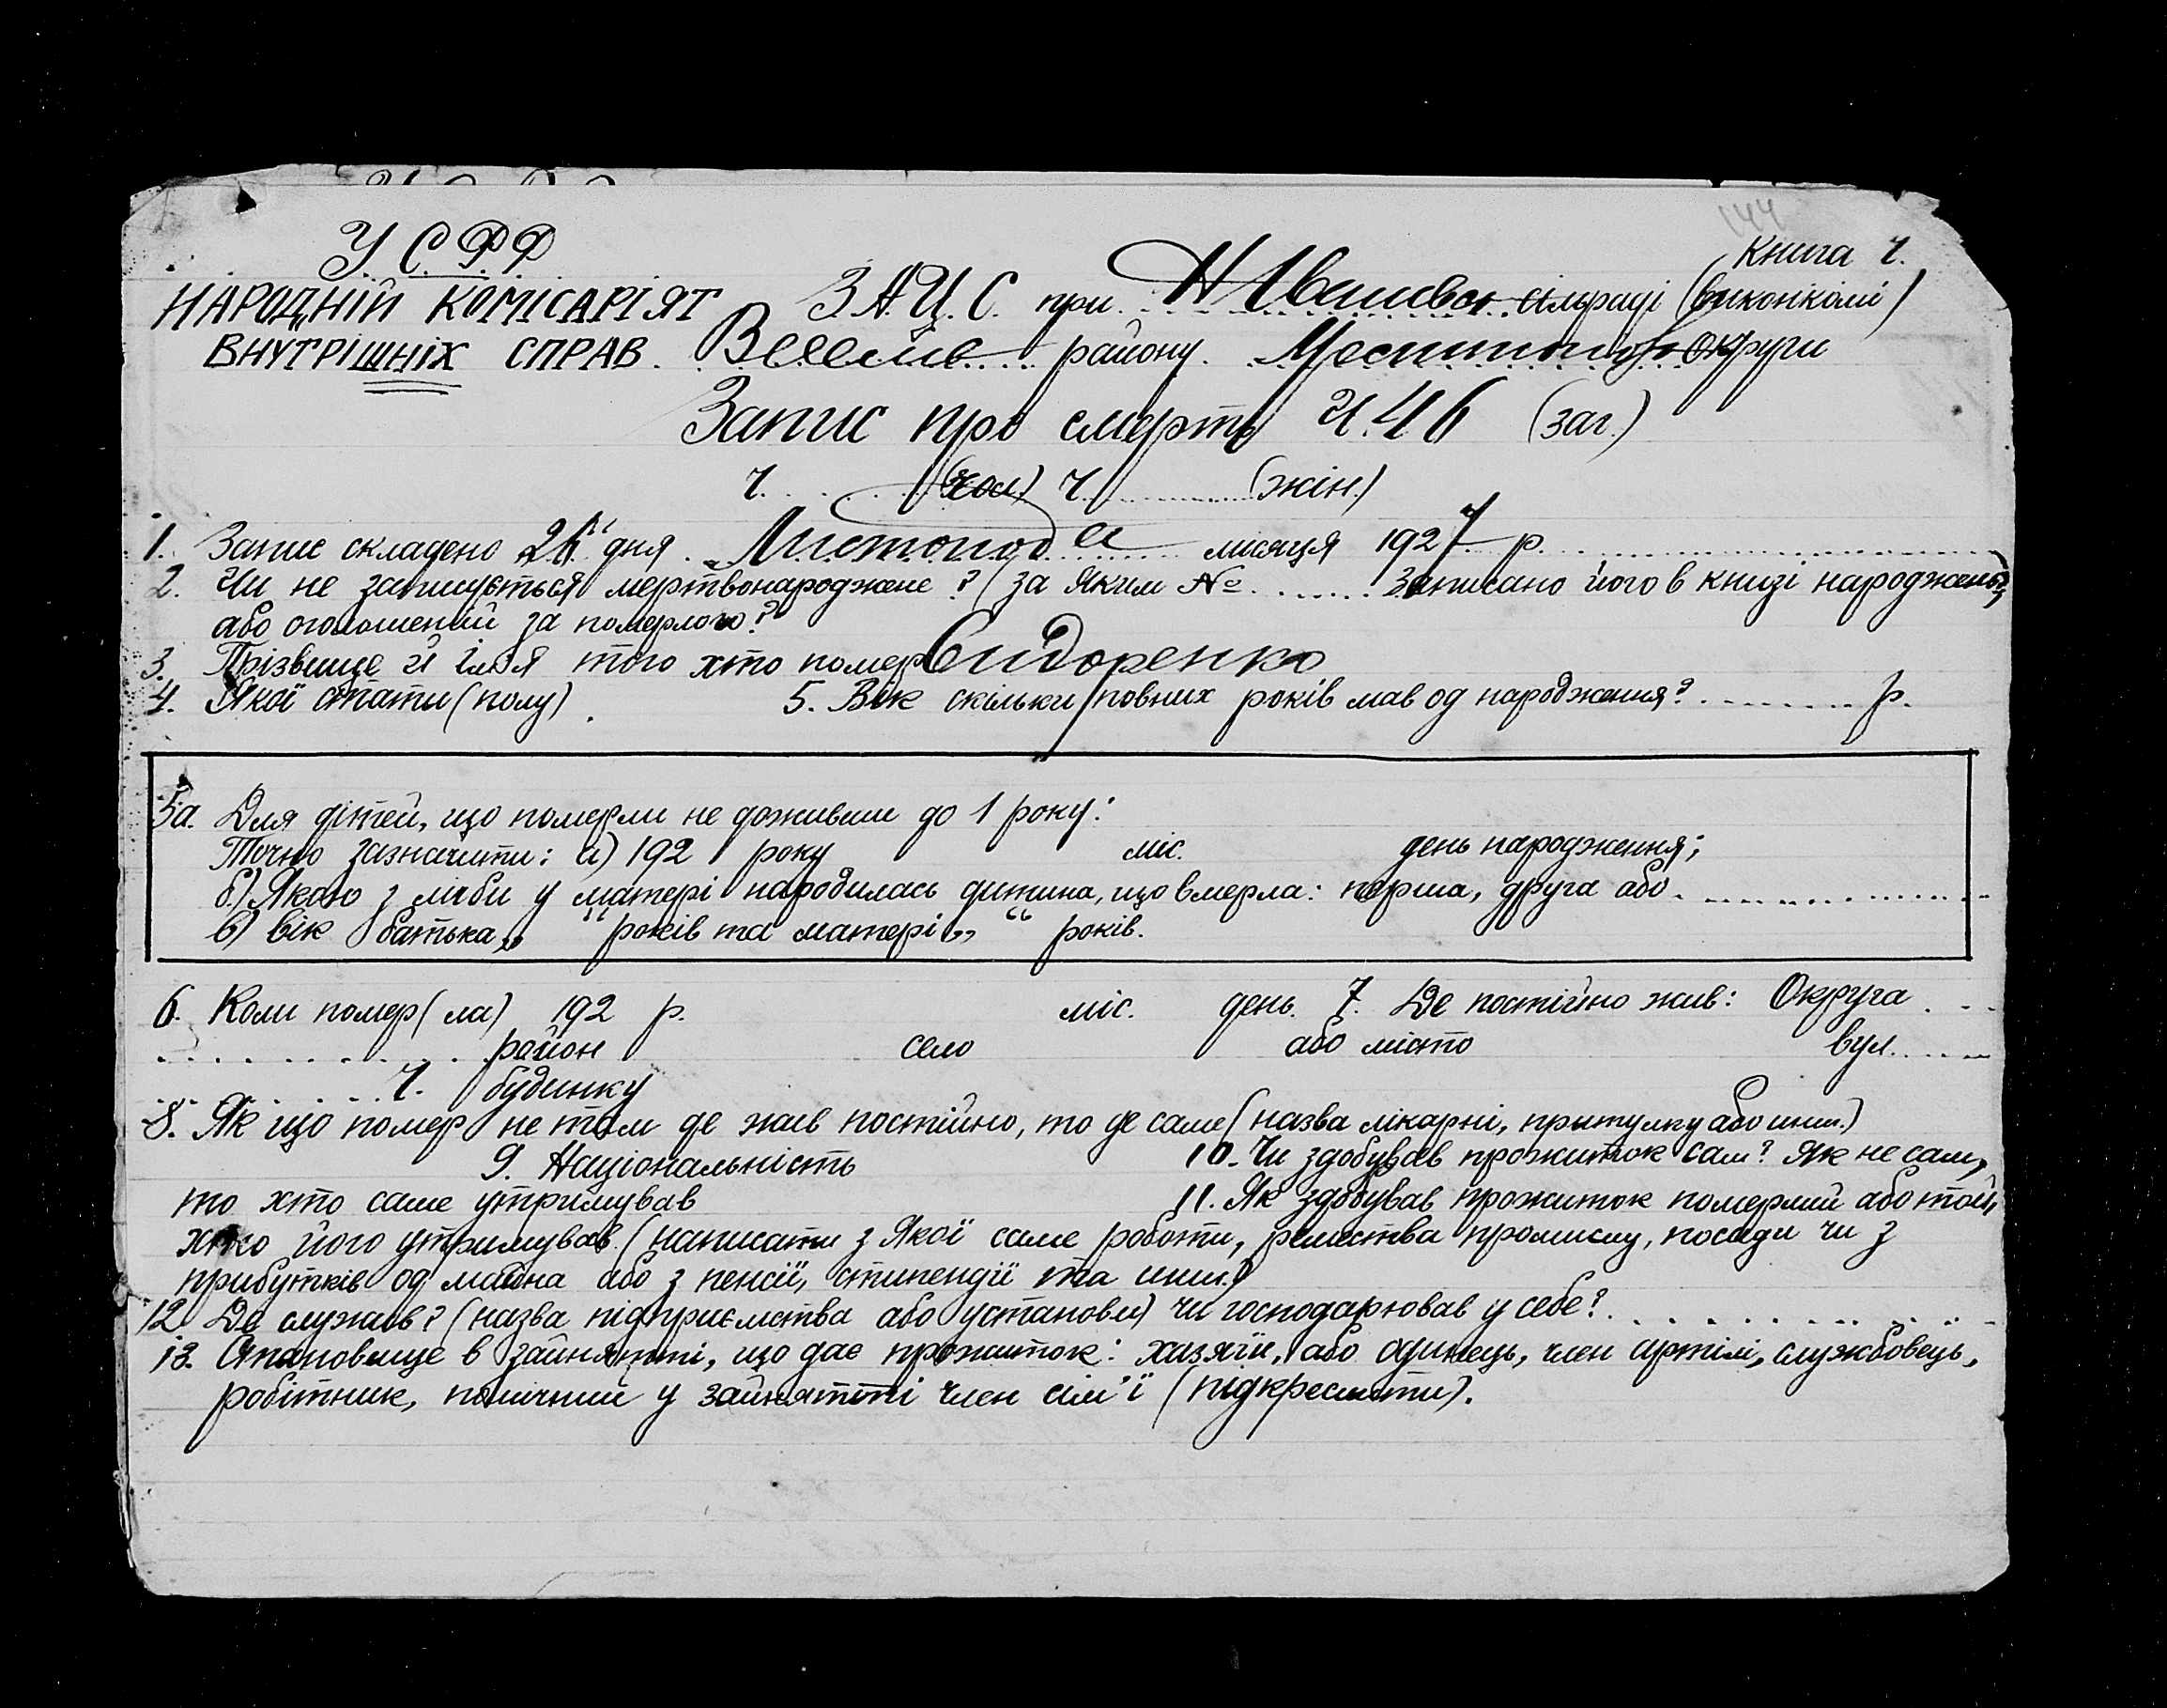 144
Книга ч.
У.С.Р.Р.
НАРОДНІЙ КОМІСАРІЯТ З.А.Ц.С. при Н Іванівськ сільраді (виконкомі)
ВНУТРІШНІХ СПРАВ. району. округи
Запис про смерть ч. 46 (заг.)
ч. (чол) ч. (жін.)
1. Запис складено 26 дня Листопада місяця 1927 р.
2. Чи не записується мертвонароджене? (за яким № записано його в книзі народжень),
або оголошений за померлого?
3. Прізвище й ім'я того хто помер Сидоренко
4. Якої стати (полу). 5. Вік скільки повних років мав од народження? р.
5а. Для дітей, що померли не доживши до 1 року:
Точно зазначити: а) 192 року міс. день народження;
б) Якою з лічби у матері народилась дитина, що вмерла: перша, друга або
в) вік батька „ “ років та матері „ “ років.
6. Коли помер (ла) 192 р. міс. день. 7. Де постійно жив: Округа
район село або місто вул.
ч. будинку
8. Як що помер не там де жив постійно, то де саме (назва лікарні, притулку або инш.)
9. Національність 10. Чи здобував прожиток сам? Як не сам,
то хто саме утримував 11. Як здобував прожиток померлий або той,
хто його утримував (написати з якої саме роботи, ремества промислу, посади чи з
прибутків од майна або з пенсії, стипендії та инш.)
12. Де служив? (назва підприємства або установи) чи господарював у себе?
13. Становище в зайнятті, що дає прожиток: хазяїн, або одинець, член артілі, службовець,
робітник, помічний у зайнятті член сім'ї (підкреслити).